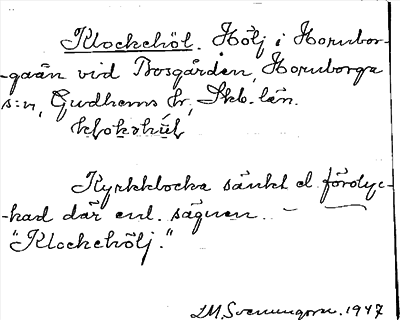 Klockehöl. Hölj i Hornbor-
-gaån vid Bosgården, Hornborga
s:n, Gudhems hr, Skb. län.
Kyrkklocka sänkt el. förolyc-
-kad där enl. sägnen. –
"Klockehölj."
1947